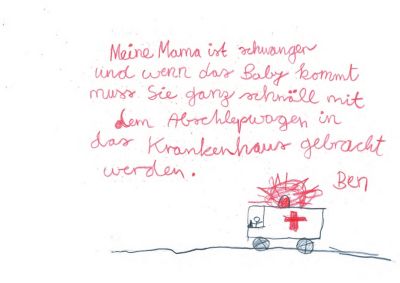 Meine Mama ist schwanger
und wenn das Baby kommt
muss Sie ganz schnäll mit
dem Abschlepwagen in
das Krankenhaus gebracht
werden.
Ben